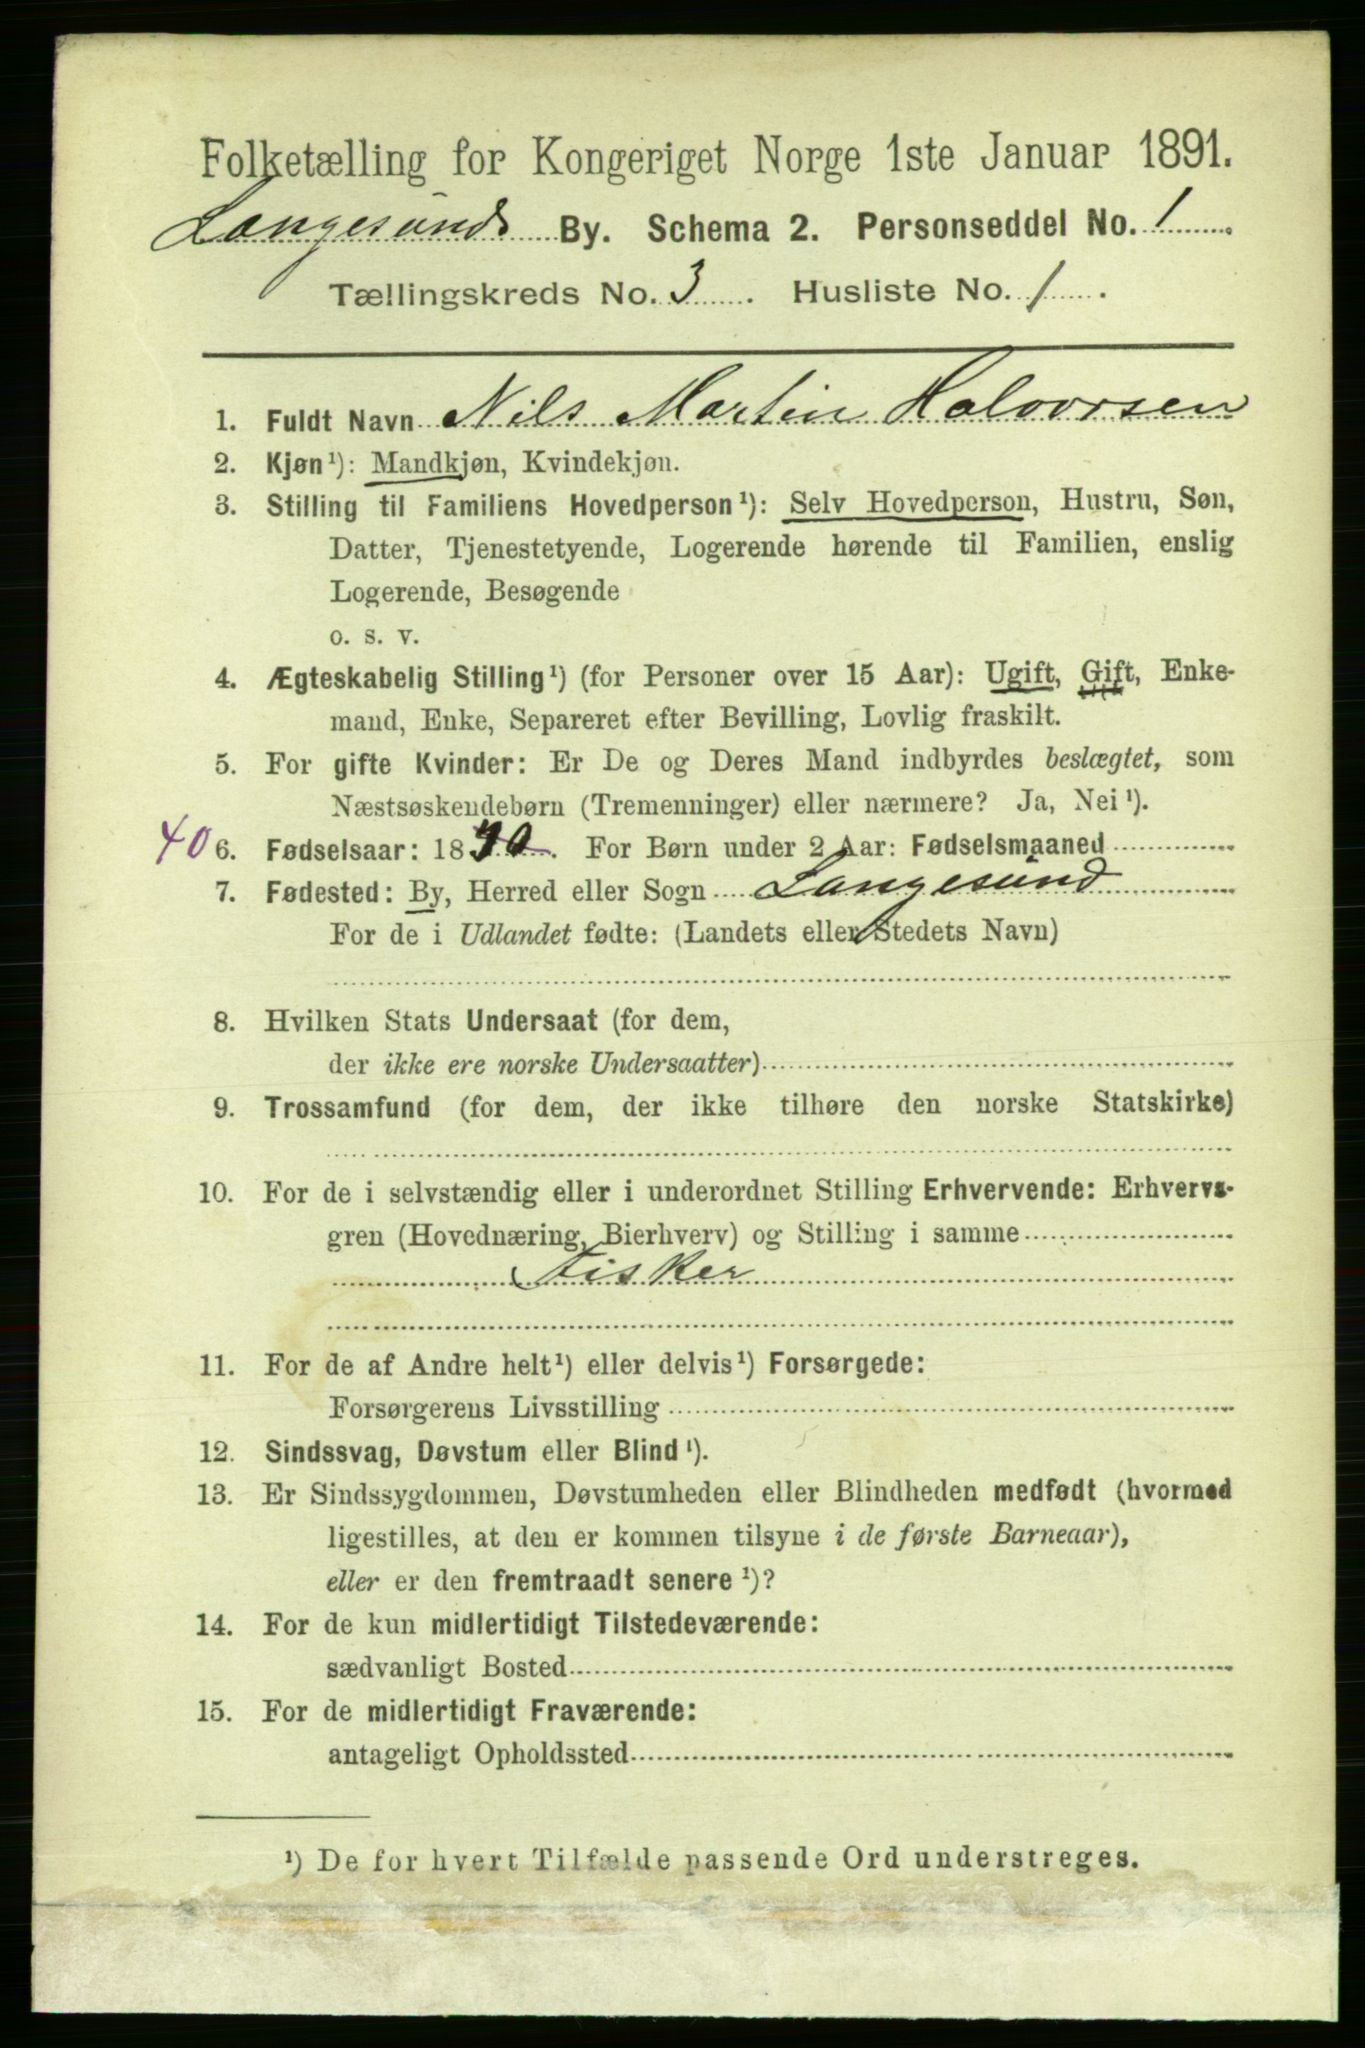 Folketælling for Kongeriget Norge 1ste Januar 1891.
Langesunds By. Schema 2. Personseddel No. 1
Tællingskreds No. 3. Husliste No. 1.
1. Fuldt Navn Nils Martin Halvorsen
2. Kjøn¹): Mandkjøn, Kvindekjøn.
3. Stilling til Familiens Hovedperson¹): Selv Hovedperson, Hustru, Søn,
Datter, Tjenestetyende, Logerende hørende til Familien, enslig
Logerende, Besøgende
o. s. v.
4. Ægteskabelig Stilling¹) (for Personer over 15 Aar): Ugift, Gift, Enke-
mand, Enke, Separeret efter Bevilling, Lovlig fraskilt.
5. For gifte Kvinder: Er De og Deres Mand indbyrdes beslægtet, som
Næstsøskendebørn (Tremenninger) eller nærmere? Ja, Nei¹).
40 6. Fødselsaar: 18. For Børn under 2 Aar: Fødselsmaaned
7. Fødested: By, Herred eller Sogn Langesund
For de i Udlandet fødte: (Landets eller Stedets Navn)
8. Hvilken Stats Undersaat (for dem,
der ikke ere norske Undersaatter)
9. Trossamfund (for dem, der ikke tilhøre den norske Statskirke)
10. For de i selvstændig eller i underordnet Stilling Erhvervende: Erhvervs-
gren (Hovednæring, Bierhverv) og Stilling i samme
Fisker
11. For de af Andre helt¹) eller delvis¹) Forsørgede:
Forsørgerens Livsstilling
12. Sindssvag, Døvstum eller Blind¹).
13. Er Sindssygdommen, Døvstumheden eller Blindheden medfødt (hvormed
ligestilles, at den er kommen tilsyne i de første Barneaar),
eller er den fremtraadt senere¹)?
14. For de kun midlertidigt Tilstedeværende:
sædvanligt Bosted
15. For de midlertidigt Fraværende:
antageligt Opholdssted
¹) De for hvert Tilfælde passende Ord understreges.